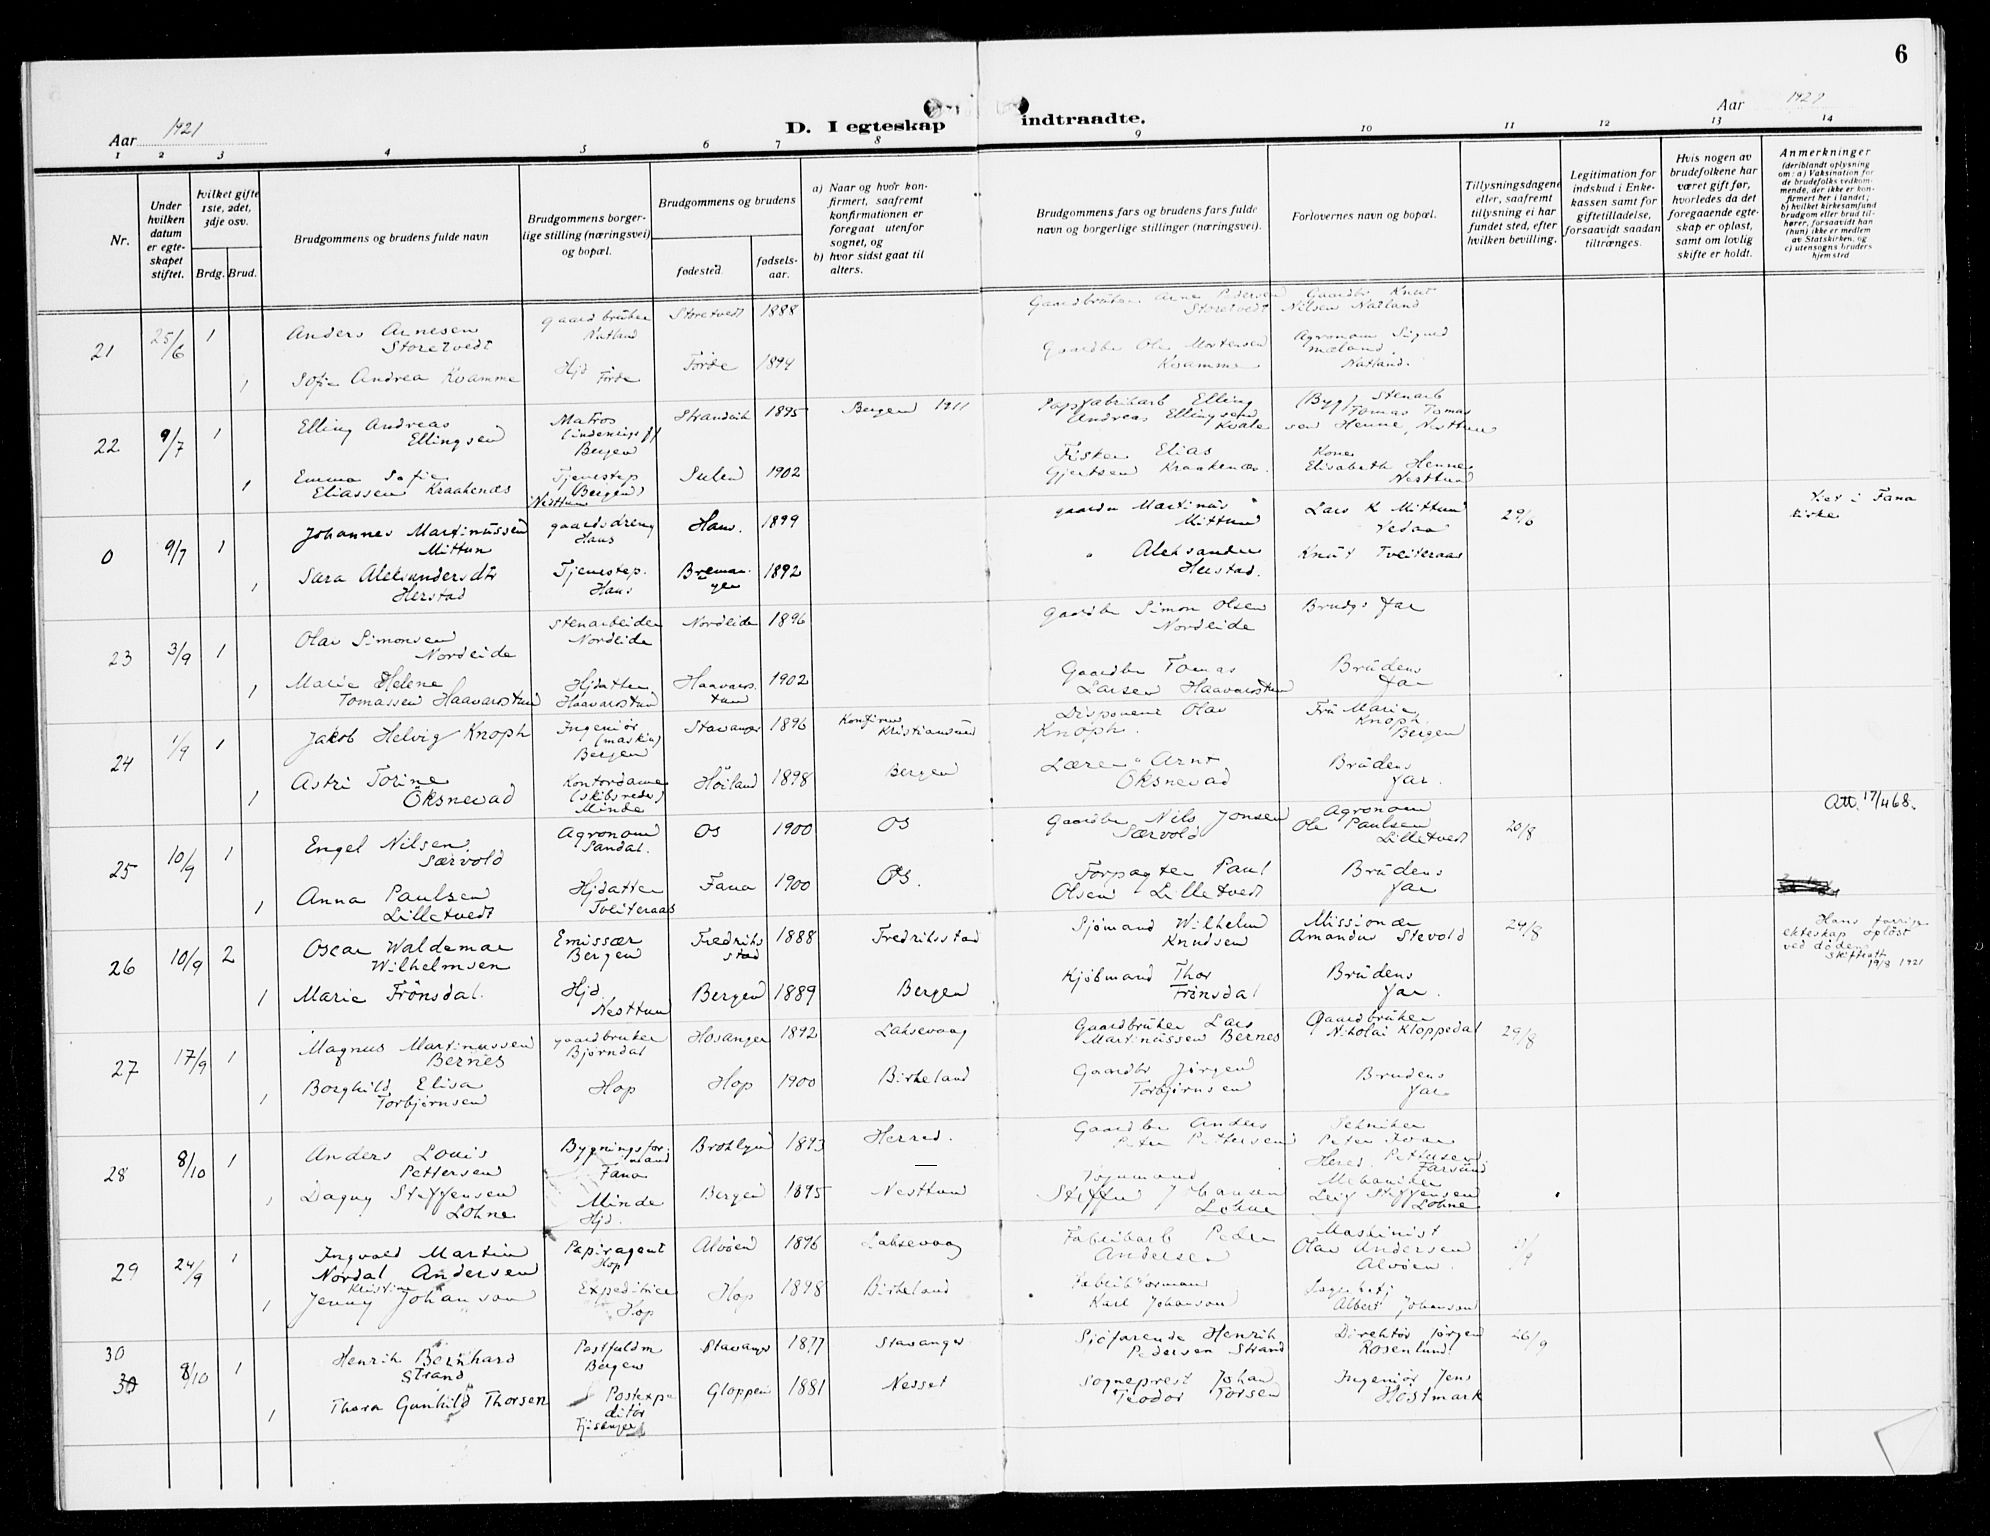 6
Aar 1921
D. I egteskap indtraadte.
Aar 1921
1 2 3 4 5 6 7 8 9 10 11 12 13 14
Nr.
Under hvilken datum er egteskapet stiftet.
hvilket gifte 1ste, 2det, 3dje osv.
Brdg. Brud.
Brudgommens og brudens fulde navn
Brudgommens borgerlige stilling (næringsvei) og bopæl.
Brudgommens og brudens
fødested.
fødselsaar.
a) Naar og hvor konfirmert, saafremt konfirmationen er foregaat utenfor sognet, og
b) hvor sidst gaat til alters.
Brudgommens fars og brudens fars fulde navn og borgerlige stillinger (næringsvei).
Forlovernes navn og bopæl.
Tillysningsdagene eller, saafremt tillysning ei har fundet sted, efter hvilken bevilling.
Legitimation for indskud i Enkekassen samt for giftetilladelse, forsaavidt saadan tiltrænges.
Hvis nogen av brudefolkene har været gift før, hvorledes da det foregaaende egteskap er opløst, samt om lovlig skifte er holdt.
Anmerkninger
(deriblandt oplysning om: a) Vaksination for de brudefolks vedkommende, der ikke er konfirmert her i landet; b) hvilket kirkesamfund brudgom eller brud tilhører, forsaavidt han (hun) ikke er medlem av Statskirken, og c) utensogns bruders hjemsted
21 25/6 1 Anders Arnesen Storetvedt gaardbruker Natland Storetvedt 1888 Gaardbruker Arne Pedersen Storetvedt Gaardbr Knut Nilsen Natland
1 Sofie Andrea Kvamme Hjd Førde Førde 1894 Gaardbr Ole Mortensen Kvamme Agronom Sigurd Mæland Natland.
22 9/7 1 Elling Andreas Ellingsen Matros (indenrigsf) Bergen Strandvik 1895 Bergen 1911 Papfabrikarb Elling Andreas Ellingsen Kvale (Byg) Stenarb Tomas Tomassen Henne, Nesttun
1 Emma Sofie Eliassen Kraakenes Tjenestep (Bergen) Nesttun Sulen 1902 Fisker Elias Gjertsen Kraakenes. Kone Elisabeth Henne Nesttun
0 9/7 1 Johannes Martinussen Mittun gaardsdreng Haus Haus. 1899 gaardbr Martinus Mittun Lars K Mittun Vedaa 29/6 Viet i Fana kirke
1 Sara Aleksandersdtr Herstad Tjenestep. Haus Bremanger 1892 " Aleksander Herstad. Knut Tveiteraas
23 3/9 1 Olav Simonsen Nordeide Stenarbeider Nordeide Nordeide 1896 Gaardbr Simon Olsen Nordeide Brudgs far
1 Marie Helene Tomassen Haavarstun Hjdatter Haavarstun Haavarstun 1902 Gaardbr Tomas Larsen Haavarstun Brudens far
24 1/9 1 Jakob Helvig Knoph Ingeniør (maskin) Bergen Stavanger 1896 Konfirm Kristiansund Disponent Olav Knoph. Fru Marie Knoph. Bergen
1 Astri Torine Øksnevad Kontordame (skibsrederi) Minde Høiland 1898 Bergen Lærer Arnt Øksnevad Brudens far.
25 10/9 1 Engel Nilsen Særvold Agronom Sandal. Os 1900 Os Gaardbr Nils Jonsen Særvold Agronom Ole Paulsen Lilletvedt 20/8 Att. 17/4 68.
1 Anna Paulsen Lilletvedt Hjdatter Tveiteraas Fana 1900 Os. Forpagter Paul Olsen Lilletvedt Brudens far
26 10/9 2 Oscar Waldemar Wilhelmsen Emissær Bergen Fredrikstad 1888 Fredriksstad Sjømand Wilhelm Knudsen Missionær Amandus Stevold 24/8 Hans forrige ekteskap opløst ved døden Skifteatt. 19/8 1921
1 Marie Frønsdal. Hjd. Nesttun Bergen 1889 Bergen Kjøbmand Thor Frønsdal Brudens far.
27 17/9 1 Magnus Martinussen Bernes gaardbruker Bjørndal Hosanger 1892 Laksevaag Gaardbruker Lars Martinussen Bernes Gaardbruker Nikolai Kloppedal 29/8
1 Borghild Elisa Torbjørnsen Hop Hop 1900 Birkeland Gaardbr Jørgen Torbjørnsen Brudens far
28 8/10 1 Anders Louis Pettersen Bygningsformand Fana Brooklyn 1893 Herred. Gaardbr Anders Peter Pettersen Tekniker Peter Ivar Pettersen Hered. Farsund
1 Dagny Steffensen Lohne Minde Hjd. Bergen 1895 Nesttun Steffen Johansen Lohne Mekaniker Leif Steffensen Lohne
29 24/9 1 Ingvald Martin Nordal Andersen Papiragent Hop Alvøen 1896 Laksevaag Fabrikarb Peder Andersen Maskinist Olav Andersen Alvøen.
1 Jenny Kristine Johanson Expeditrice Hop Hop 1898 Birkeland Fabrikforman Karl Johanson Albert Johanson
30 8/10 1 Henrik Bernhard Strand Postfuldm Bergen Stavanger 1877 Stavanger Sjøfarende Henrik Pedersen Strand Direktør Jørgen Rosenlund 26/9
30 1 Thora Gunhild Thorsen Postexpeditør Gloppen 1881 Nesset Sogneprest Johan Teodor Torsen Ingeniør Jens Høstmark